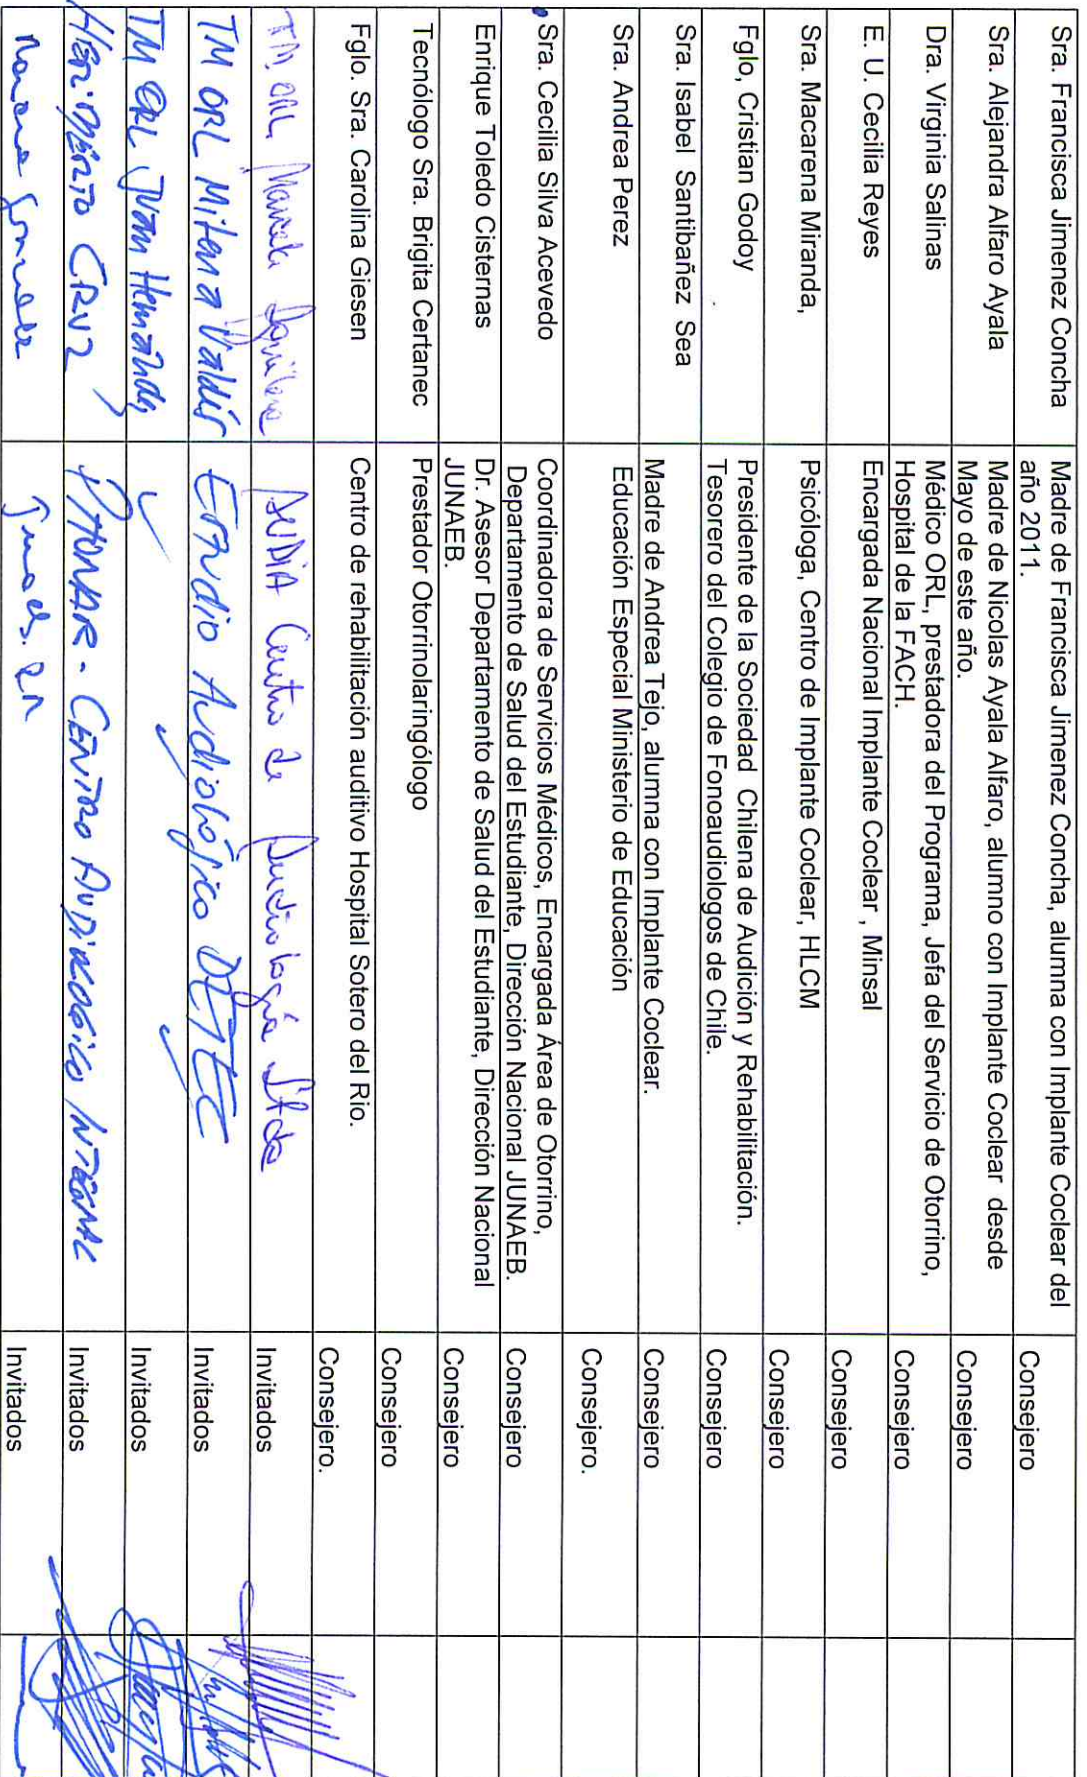 Sra. Francisca Jimenez Concha
Madre de Francisca Jimenez Concha, alumna con Implante Coclear del
año 2011.
Consejero
Sra. Alejandra Alfaro Ayala
Madre de Nicolas Ayala Alfaro, alumno con Implante Coclear desde
Mayo de este año.
Consejero
Dra. Virginia Salinas
Médico ORL, prestadora del Programa, Jefa del Servicio de Otorrino,
Hospital de la FACH.
Consejero
E. U. Cecilia Reyes
Encargada Nacional Implante Coclear , Minsal
Consejero
Sra. Macarena Miranda,
Psicóloga, Centro de Implante Coclear, HLCM
Consejero
Fglo, Cristian Godoy
Presidente de la Sociedad Chilena de Audición y Rehabilitación.
Tesorero del Colegio de Fonoaudiologos de Chile.
Consejero
Sra. Isabel Santibañez Sea
Madre de Andrea Tejo, alumna con Implante Coclear.
Consejero
Sra. Andrea Perez
Educación Especial Ministerio de Educación
Consejero.
Sra. Cecilia Silva Acevedo
Coordinadora de Servicios Médicos, Encargada Área de Otorrino,
Departamento de Salud del Estudiante, Dirección Nacional JUNAEB.
Consejero
Enrique Toledo Cisternas
Dr. Asesor Departamento de Salud del Estudiante, Dirección Nacional
JUNAEB.
Consejero
Tecnólogo Sra. Brigita Certanec
Prestador Otorrinolaringólogo
Consejero
Fglo. Sra. Carolina Giesen
Centro de rehabilitación auditivo Hospital Sotero del Rio.
Consejero.
TM. ORL Marcela Aguilera
AUDIA Centro de Audiología Ltda
Invitados
TM ORL Milena Valdés
Estudio Audiológico DETEC
Invitados
TM ORL Juan Hernández
Invitados
HERIBERTO CRUZ
CENTRO AUDIOLÓGICO INTEGRAL
Invitados
Invitados